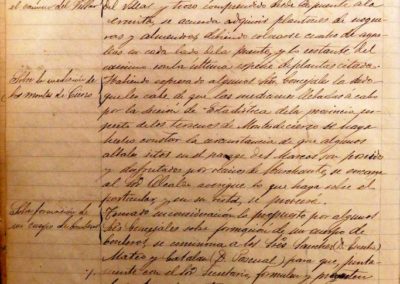 el camino del Villar
del Villar y trozo comprendido desde la puente a la
ermita, se acuerda adquirir plantones de nogue-
ras y almendros debiendo colocarse cuatro de aque-
llas en cada lado de la puente, y lo restante del
camino con la última especie de plantas citada.
Sobre la medición de
los montes de Cierzo
Habiendo expresado algunos Sres. Concejales la duda
que les cabe de que las medianas llevadas a cabo
por la sección de Estadística de la provincia res-
pecto de los terrenos de Montes de Cierzo se haya
hecho constar la circunstancia de que algunos
sitos en el paraje del Marcos son poseidos
y disfrutados por vecinos de, se encarga
al Sr. Alcalde averigue lo que haya sobre el
particular y en su vista, se provea.
Sobre formación de
un cuerpo de bomberos
Tomado en consideración lo propuesto por algunos
Sres. Concejales sobre formación de un cuerpo de
bomberos se comisiona a los Sres. Sanchez (D.
Mateo y Catalan (D. Pascual) para que junta-
mente con el Sr. Secretario, formulen y presenten